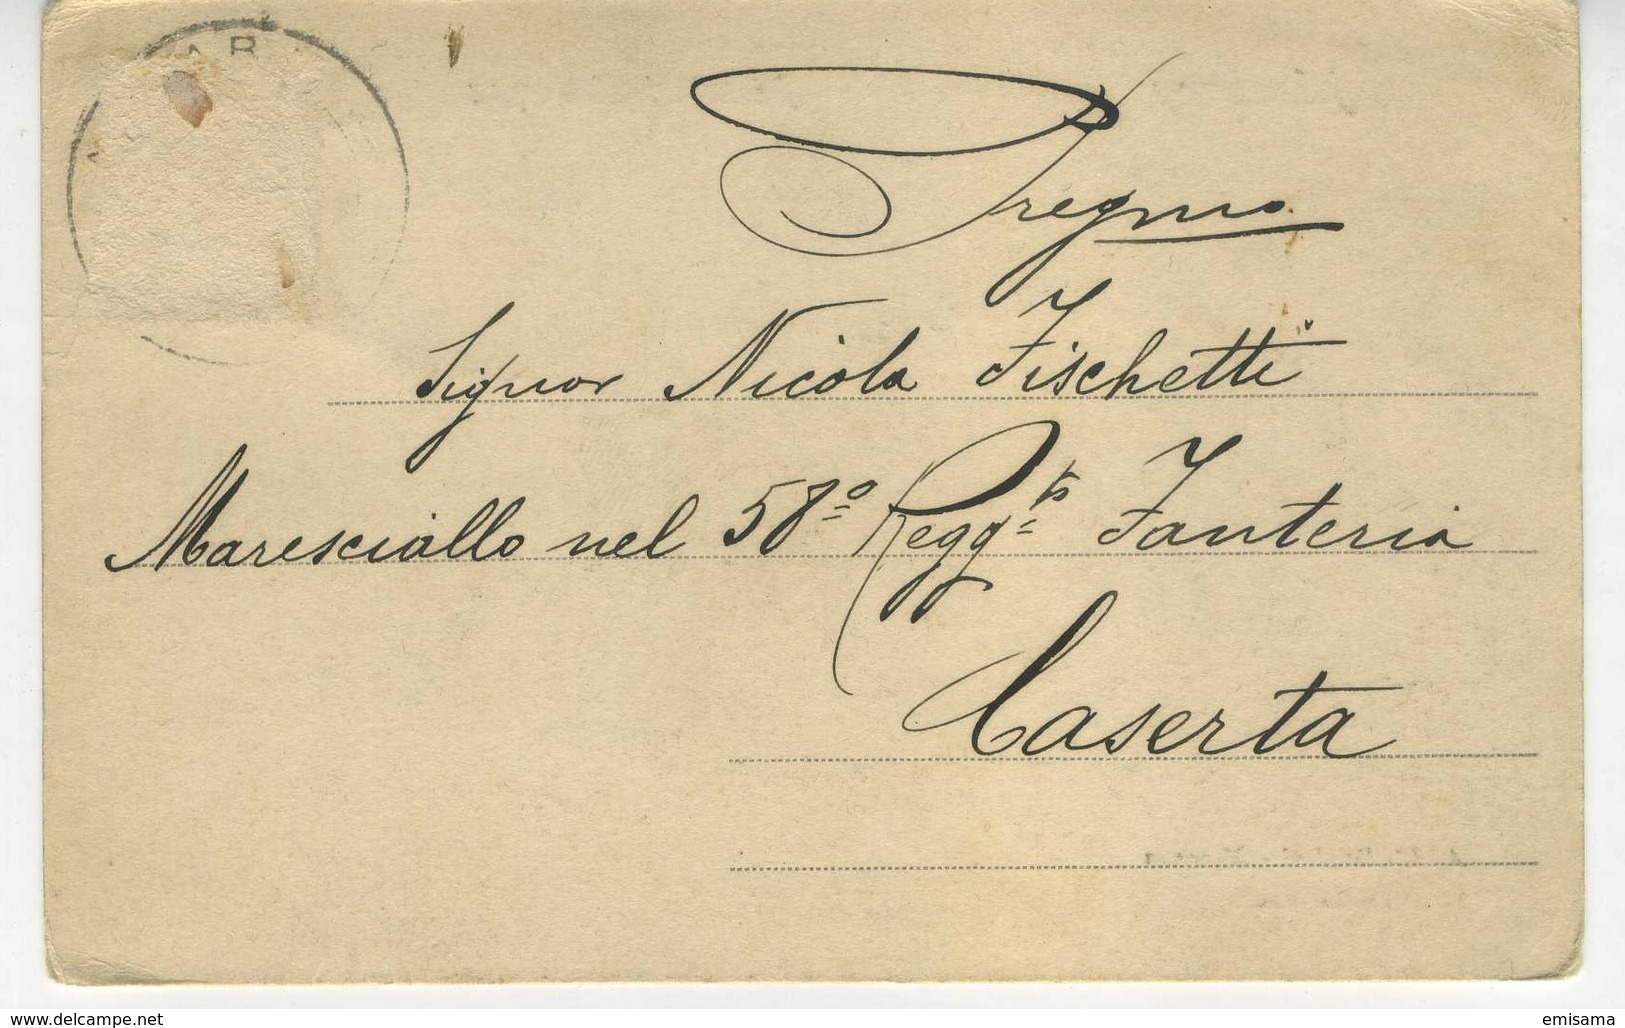 Pregmo
Signor Nicola Fischetti
Maresciallo nel 58º Regg.to Fanteria
Caserta
www.delcampe.net
emisama